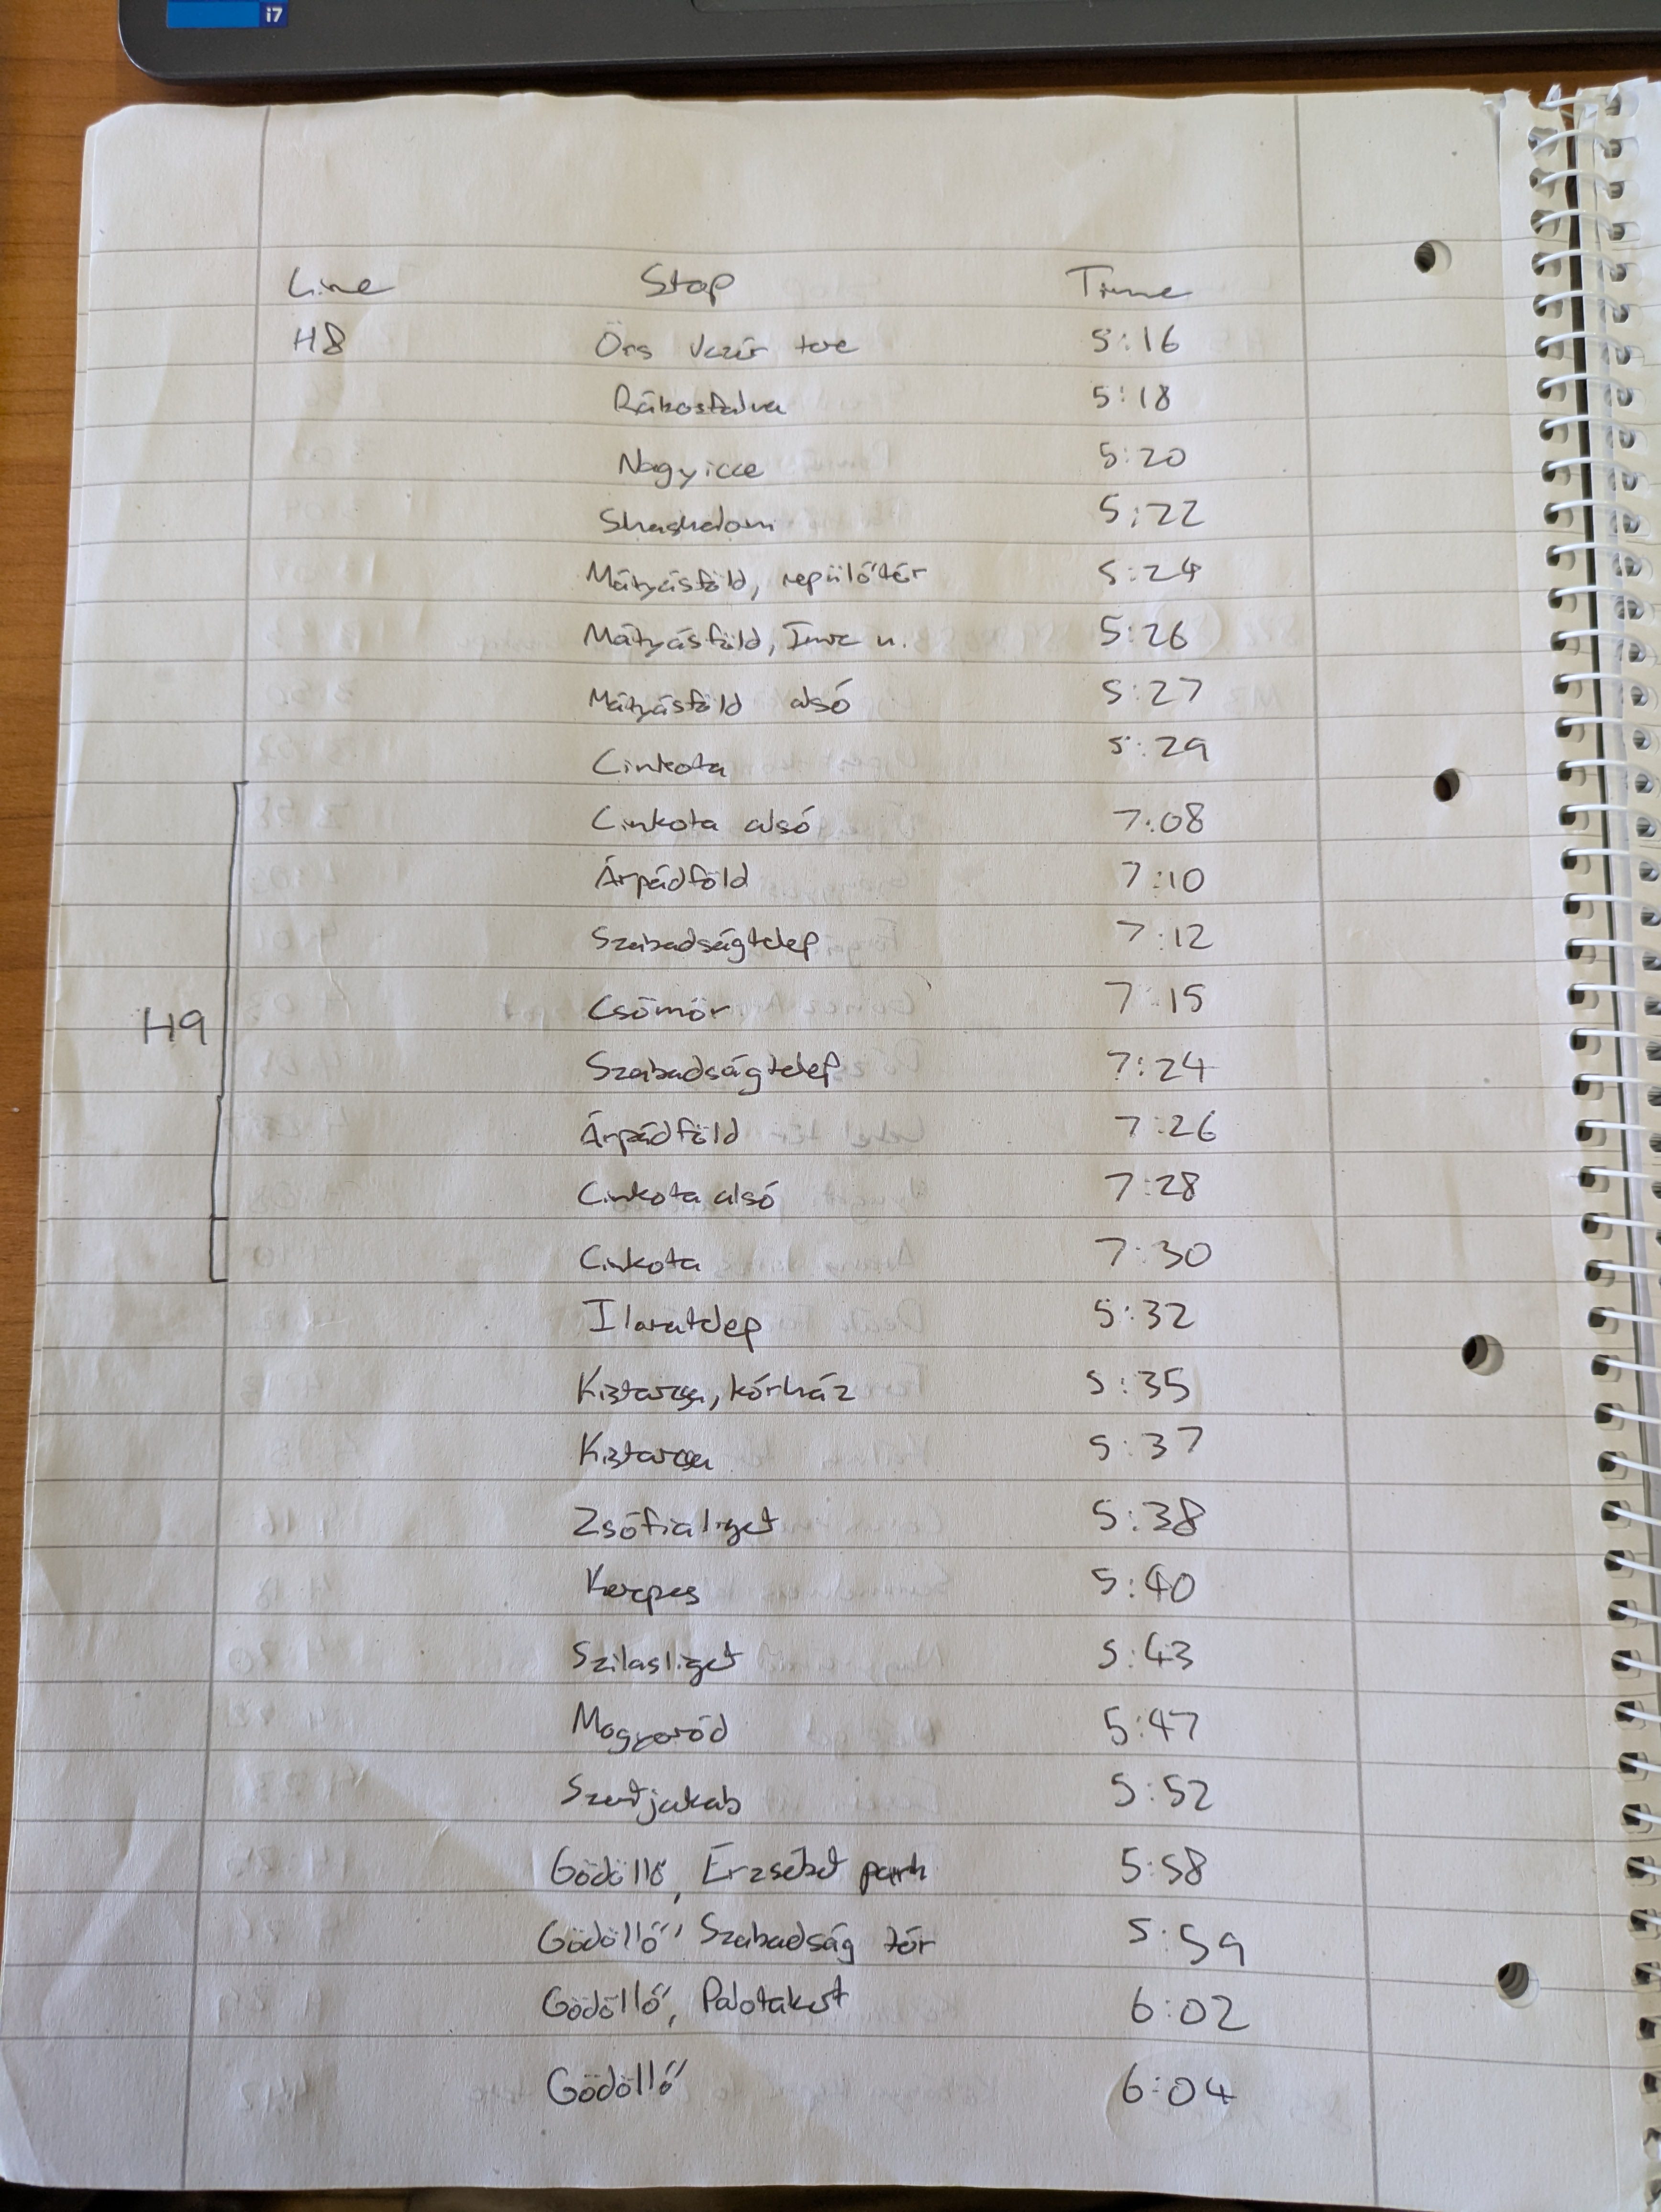 i7
Line Stop Time
H8 Örs vezér tere 5:16
Rákosfalva 5:18
Nagyicce 5:20
Shashalom 5:22
Mátyásföld, repülőtér 5:24
Mátyásföld, Imre u. 5:26
Mátyásföld alsó 5:27
Cinkota 5:29
Cinkota alsó 7:08
Árpádföld 7:10
Szabadságtelep 7:12
H9 Csömör 7:15
Szabadságtelep 7:24
Árpádföld 7:26
Cinkota alsó 7:28
Cinkota 7:30
Ilonatelep 5:32
Kistarcsa, kórház 5:35
Kistarcsa 5:37
Zsófialiget 5:38
Kerepes 5:40
Szilasliget 5:43
Mogyoród 5:47
Szentjakab 5:52
Gödöllő, Erzsébet park 5:58
Gödöllő, Szabadság tér 5:59
Gödöllő, Palotakert 6:02
Gödöllő 6:04